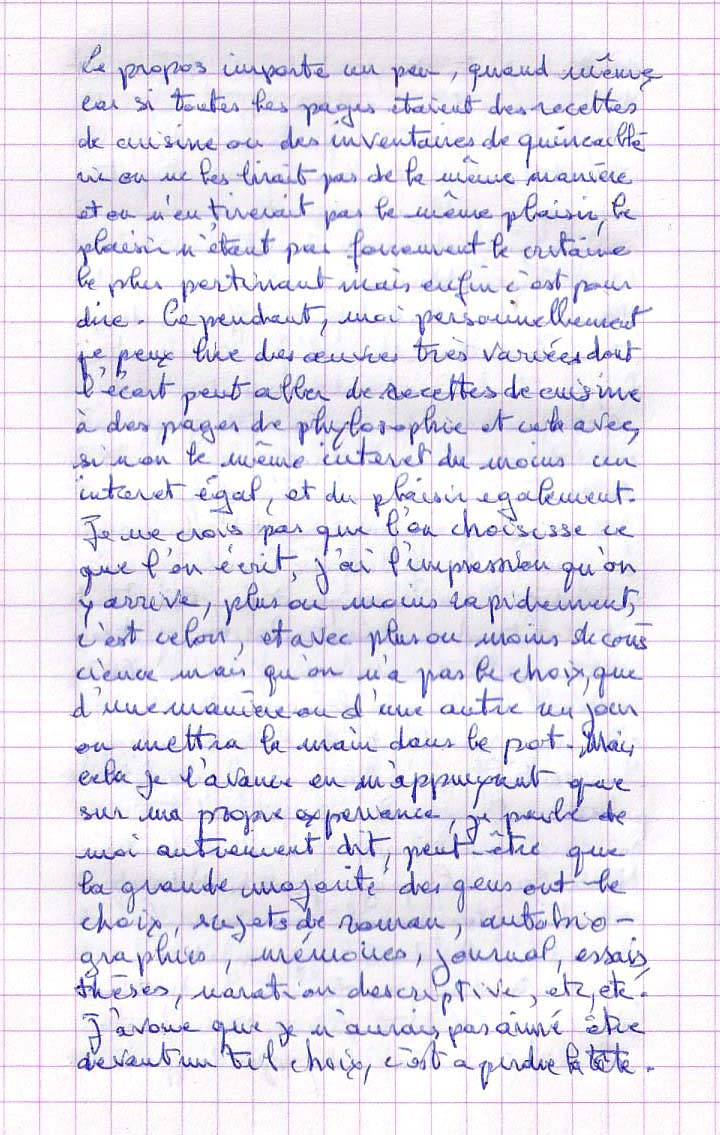 Le propos importe un peu, quand même
car si toutes les pages étaient des recettes
de cuisine ou des inventaires de quincaille
rie on ne les lirait pas de la même manière
et on n'en tirerait pas le même plaisir, le
plaisir n'étant pas forcement le critaire
le plus pertinant mais enfin c'est pour
dire. Cependant, moi personnellement
je peux lire des œuvres très variées dont
l'écart peut aller de recettes de cuisine
à des pages de phylosophie et cela avec,
sinon le même interet du moins un
interet égal, et du plaisir egalement.
Je ne crois pas que l'on choisisse ce
que l'on écrit, j'ai l'impression qu'on
y arrive, plus ou moins rapidement,
c'est celon, et avec plus ou moins de cons
cience mais qu'on n'a pas le choix, que
d'une manière ou d'une autre un jour
on mettra la main dans le pot. Mais
cela je l'avance en m'appuyant que
sur ma propre experience, je parle de
moi autrement dit, peut-être que
la grande majorité des gens ont le
choix, sujets de roman, autobio-
graphies, mémoires, journal, essais,
thèses, naration descriptive, etc, etc.
J'avoue que je n'aurais pas aimé être
devant un tel choix, c'est a perdre la tête.